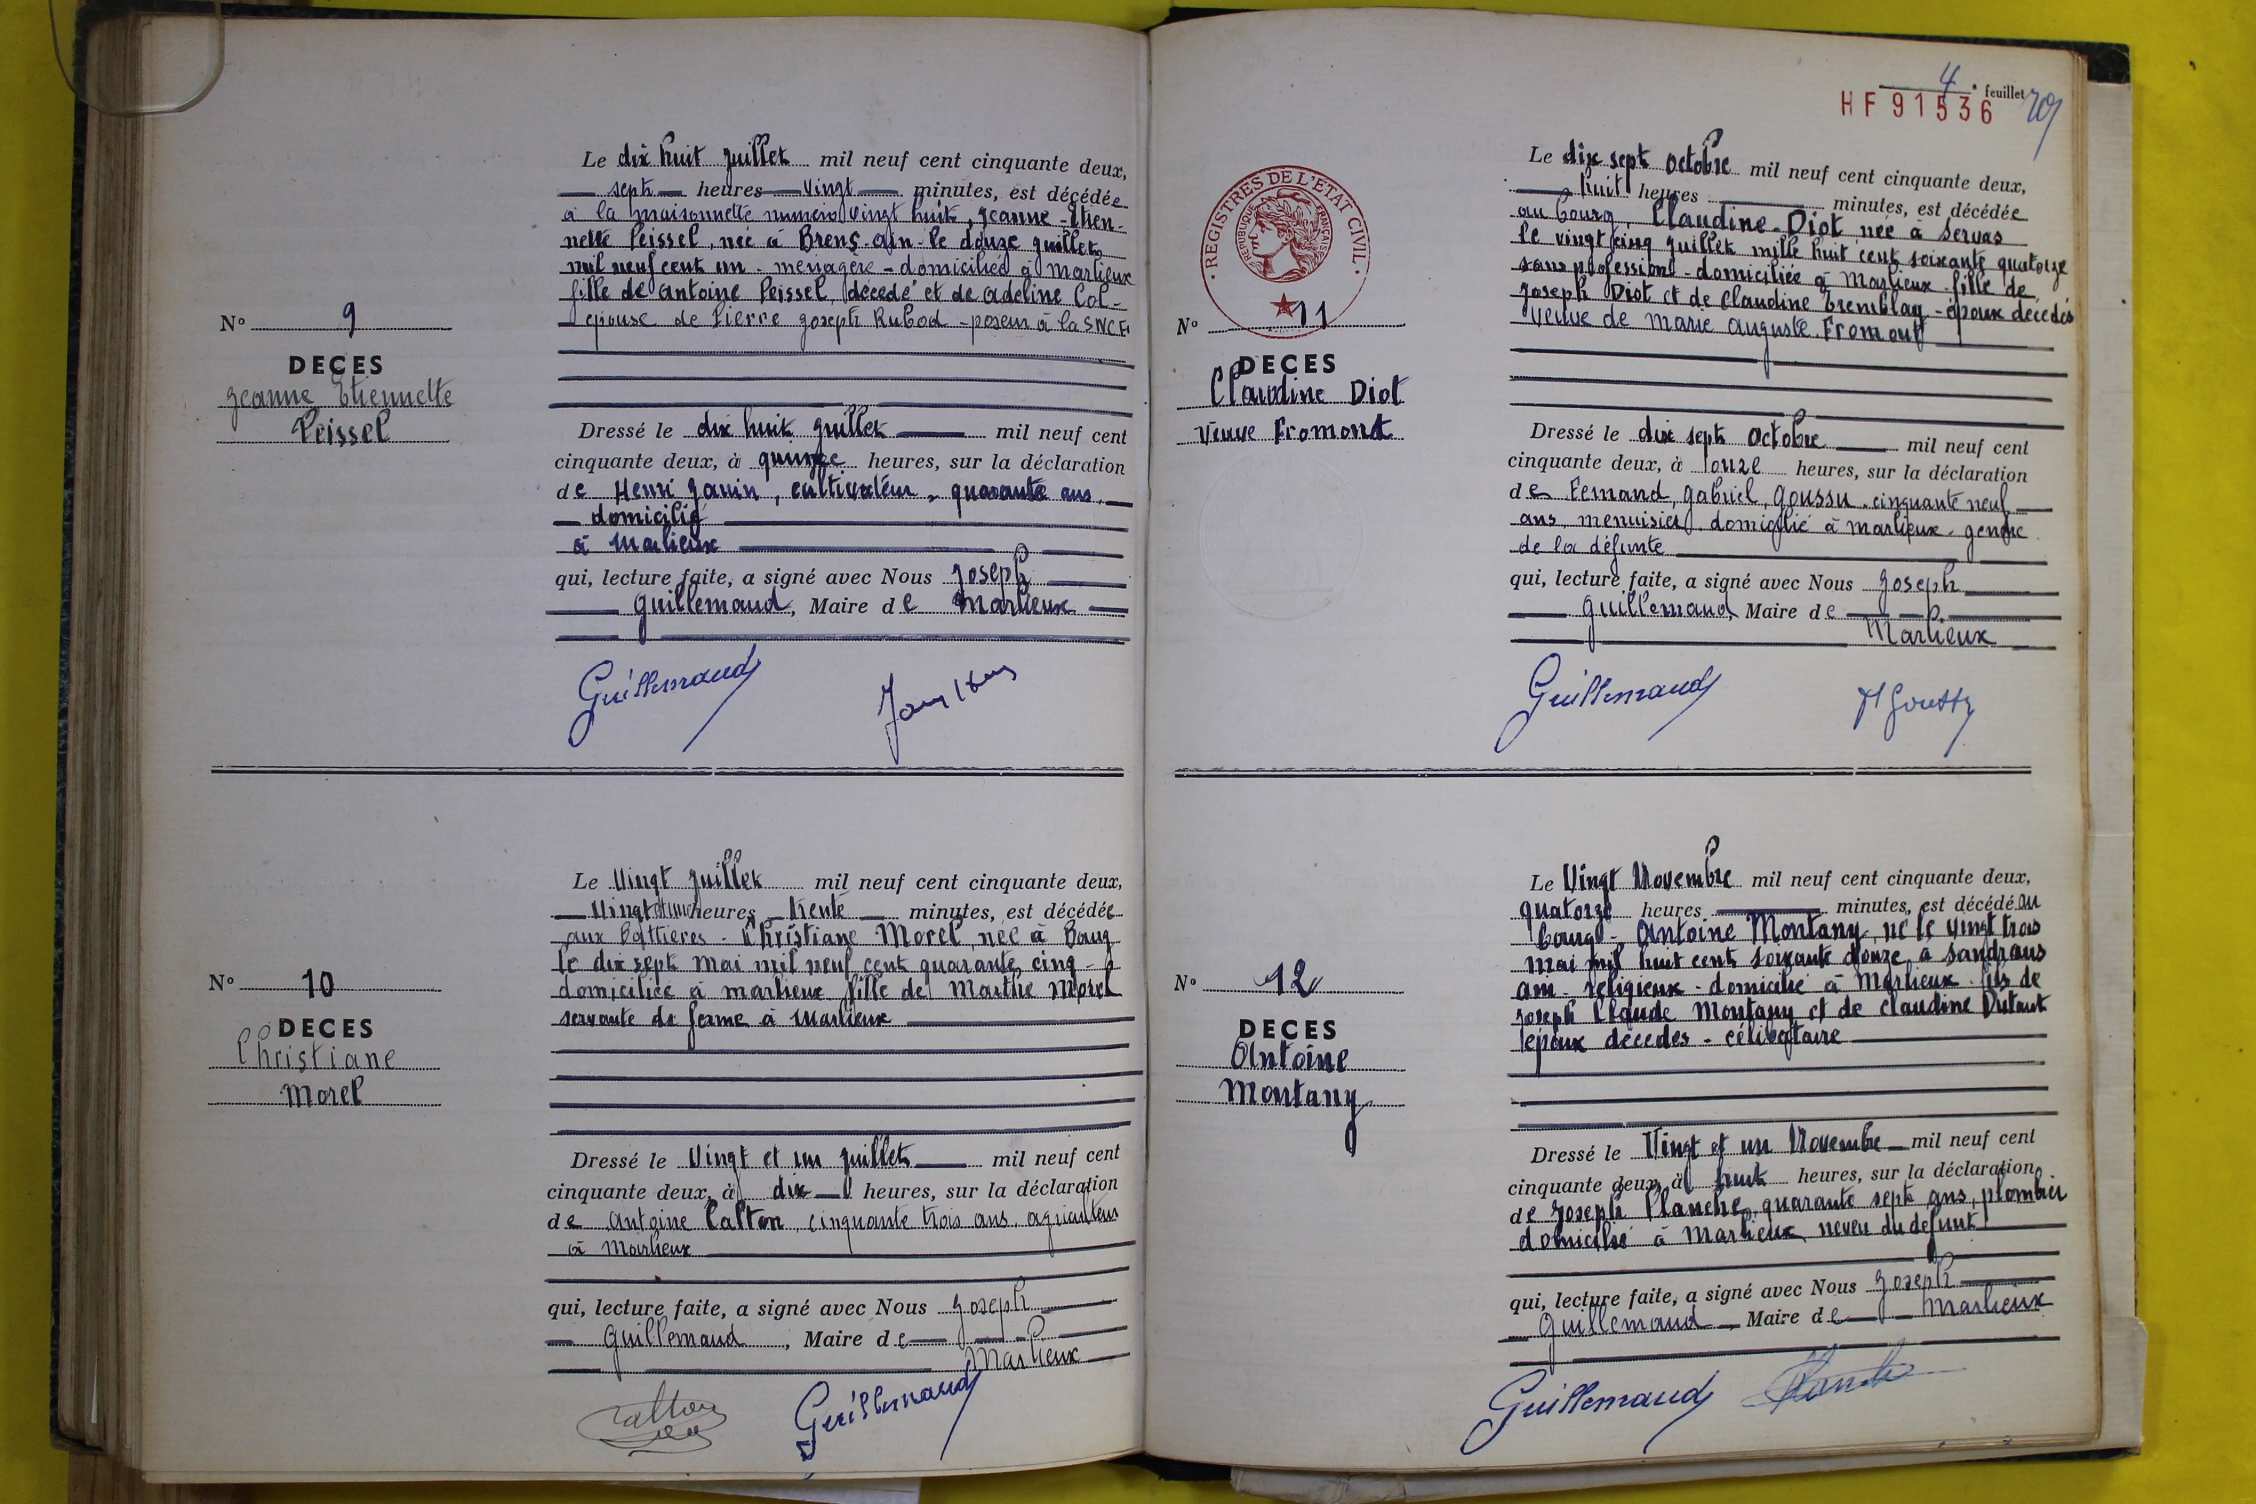 Le dix huit juillet mil neuf cent cinquante deux,
sept heures vingt minutes, est décédée
à la maisonnette numéro vingt huit, Jeanne-Etien-
nette Peissel, née à Brens-Ain-le douze juillet
mil neuf cent un - ménagère - domiciliée à Marlieux
fille de Antoine Peissel, décédé et de Adeline Col-
épouse de Pierre Joseph Rubod - poseur à la SNCF
N° 9
DECES
Jeanne Etiennette
Peissel
Dressé le dix huit juillet mil neuf cent
cinquante deux, à quinze heures, sur la déclaration
de Henri Janin, cultivateur, quarante ans,
domicilié
à Marlieux
qui, lecture faite, a signé avec Nous Joseph
Guillemaud, Maire de Marlieux
Guillemaud
Le Vingt juillet mil neuf cent cinquante deux,
Vingt et une heures trente minutes, est décédée
aux Battières - Christiane Morel, née à Bourg
le dix sept mai mil neuf cent quarante cinq -
domiciliée à Marlieux fille de Marthe Morel
servante de ferme à Marlieux
N° 10
DECES
Christiane
Morel
Dressé le Vingt et un juillet mil neuf cent
cinquante deux, à dix heures, sur la déclaration
de Antoine Catton, cinquante trois ans, agriculteur
à Marlieux
qui, lecture faite, a signé avec Nous Joseph
Guillemaud, Maire de
Marlieux
Catton Guillemaud
4e feuillet
HF 91536
Le dix sept octobre mil neuf cent cinquante deux,
huit heures minutes, est décédée
au bourg, Claudine Diot née à Servas
le vingt cinq juillet mille huit cent soixante quatorze
sans profession - domiciliée à Marlieux - fille de
Joseph Diot et de Claudine Tremblay - époux décédés
Veuve de Marie Auguste Fromont
REGISTRES DE L'ETAT CIVIL
REPUBLIQUE FRANÇAISE
N° 11
DECES
Claudine Diot
Veuve Fromont
Dressé le dix sept octobre mil neuf cent
cinquante deux, à onze heures, sur la déclaration
de Fernand, Gabriel Goussu, cinquante neuf
ans, menuisier, domicilié à Marlieux - gendre
de la défunte
qui, lecture faite, a signé avec Nous Joseph
Guillemaud, Maire de
Marlieux
Guillemaud
Le Vingt Novembre mil neuf cent cinquante deux,
quatorze heures minutes, est décédé au
bourg - Antoine Montany, né le vingt trois
mai mil huit cent soixante douze, à Sandrans
Ain - religieux - domicilié à Marlieux - fils de
Joseph Claude Montany et de Claudine Dutant
époux décédés - célibataire
N° 12
DECES
Antoine
Montany
Dressé le Vingt et un Novembre mil neuf cent
cinquante deux, à huit heures, sur la déclaration
de Joseph Planche, quarante sept ans, plombier
domicilié à Marlieux, neveu du défunt
qui, lecture faite, a signé avec Nous Joseph
Guillemaud Maire de Marlieux
Guillemaud Planche